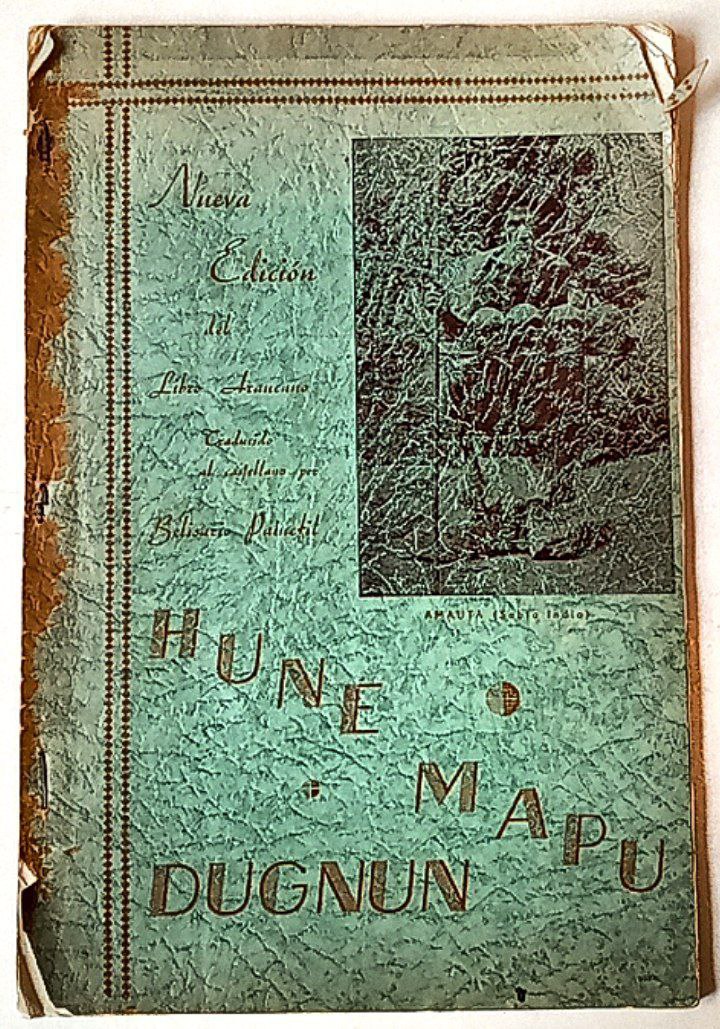 Nueva
Edición
del
Libro Araucano
Traducido
al castellano por
Belisario
AMAUTA (Sabio Indio)
HUNE
MAPU
DUGNUN